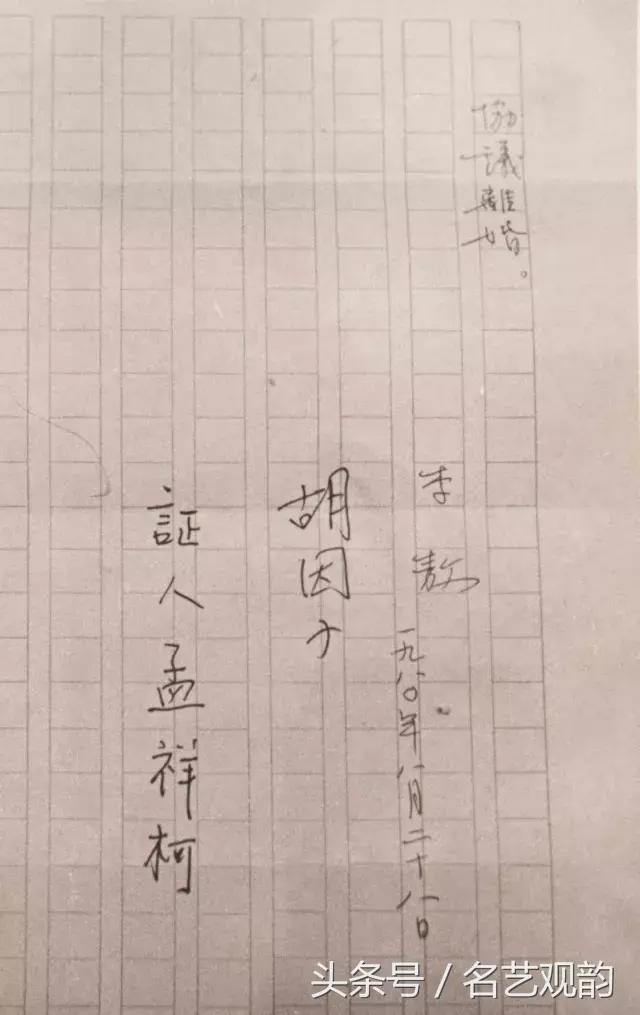 協議離婚。
李敖
一九八〇年八月二十八日
胡因子
証人孟祥柯
头条号 / 名艺观韵